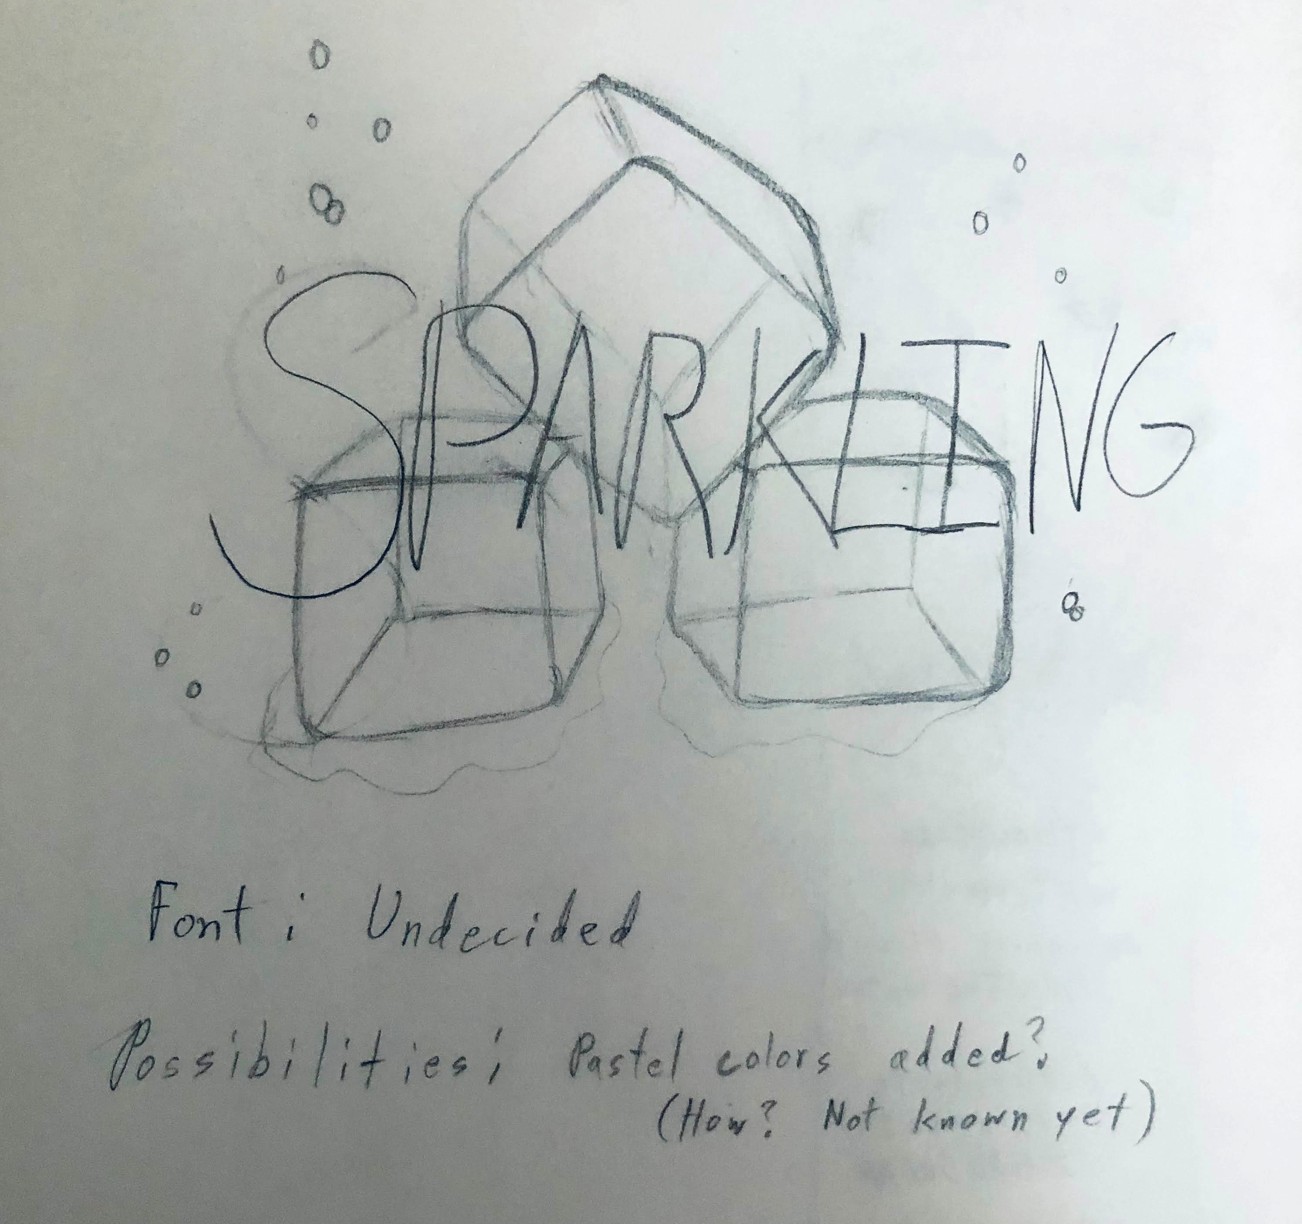 SPARKLING
Font: Undecided
Possibilities; Pastel colors added?
(How? Not known yet)